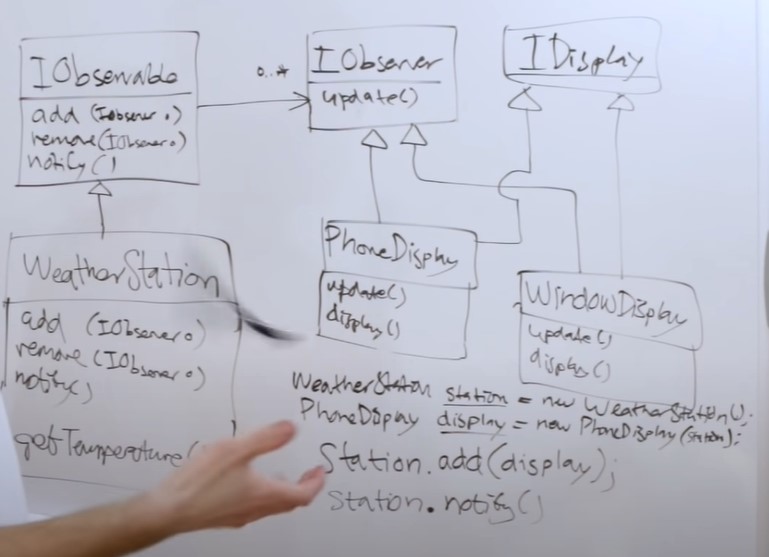 IObservable
add (IObserver o)
remove(IObserver o)
notify()
0..*
IObserver
update()
IDisplay
WeatherStation
add (IObserver o)
remove (IObserver o)
notify()
getTemperature(
PhoneDisplay
update()
display()
WindowDisplay
update()
display()
WeatherStation station = new WeatherStation();
PhoneDisplay display = new PhoneDisplay(station);
Station.add(display);
Station.notify()